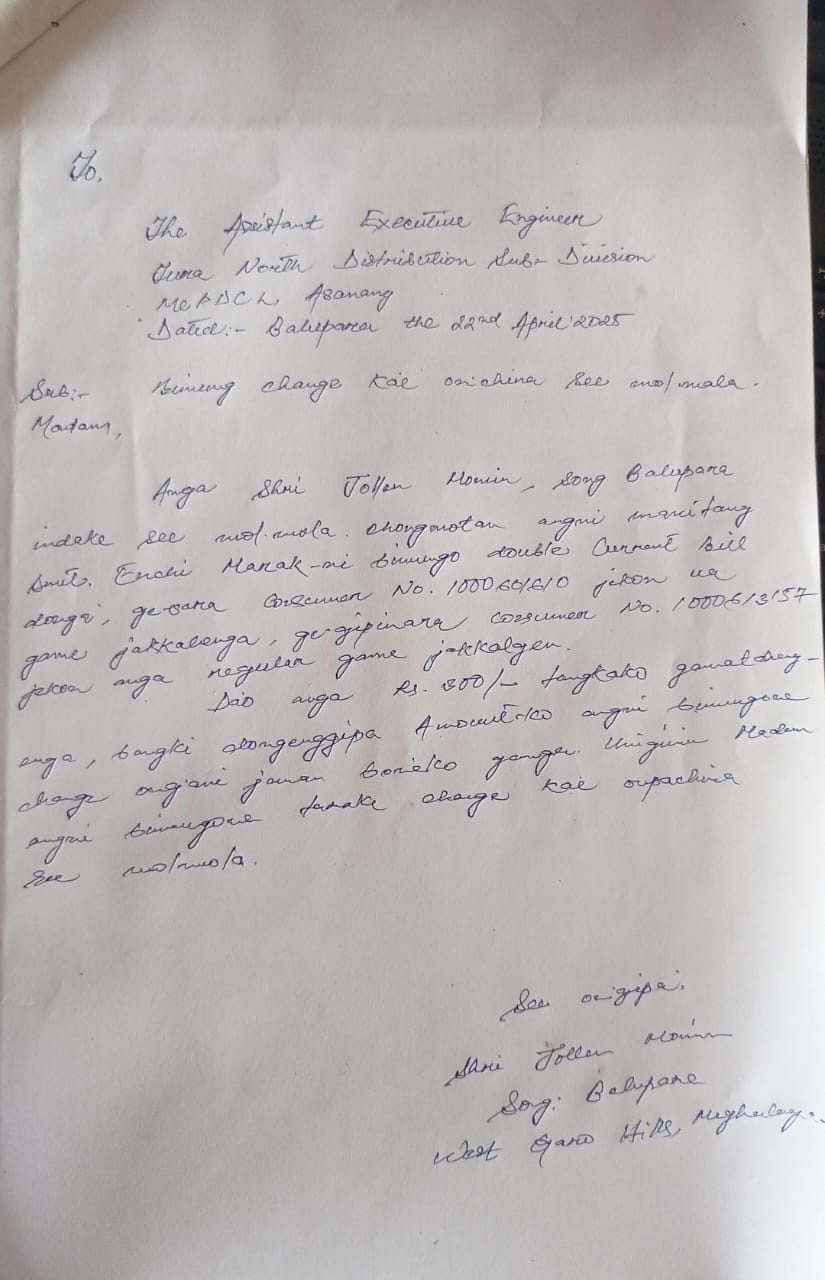 To,
The Assistant Executive Engineer
Tura North Distribution Sub-Division
MePDCL, Asanang
Dated:- Balupara the 22nd April '2025
Sub:- Bimung change kae on·china see mol·mola.
Madam,
Anga Shri Tollen Momin, Song Balupara
indake see mol·mola. chongmotan angni manitang
Smt. Enchi Marak-ni bimungo double Current Bill
donga, ge·sara Consumer No. 100060610 jekon ua
game jakkalenga, ge·gipinara Consumer No. 1000613157
jekon anga regular game jakkalgen.
Dao anga Rs. 300/- tangkako gamat
enga, bangki dongenggipa Amount-ko angni bimungona
change ongjani jaman Madam
angni bimungona change kae
see mol·mola.
See on·gipa,
Shri Tollen Momin
Song: Balupara
West Garo Hills, Meghalaya.